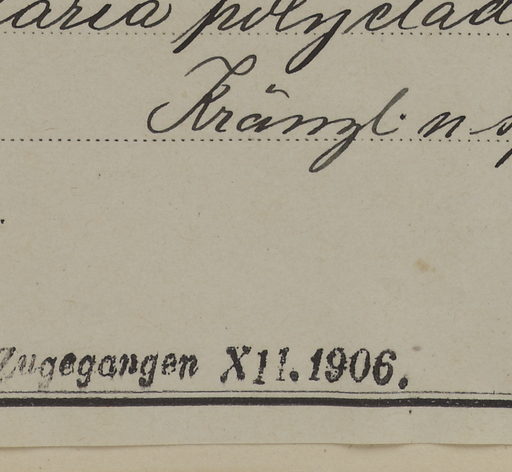 laria polyclad
Kränzl. n sp
Zugegangen XII. 1906.